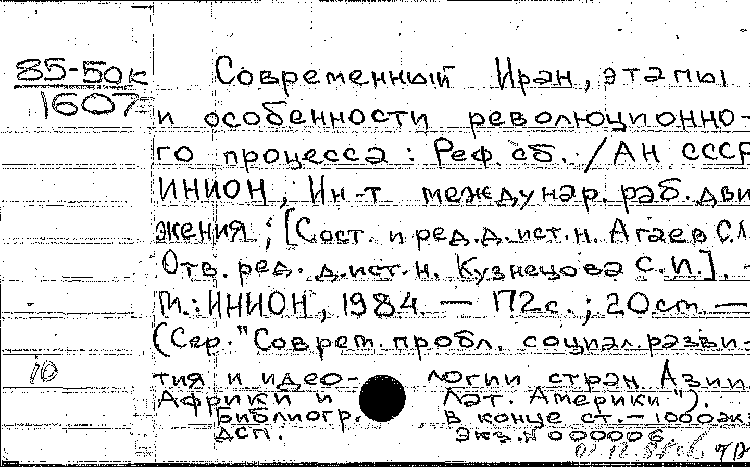 85-50к
1607
Современный Иран, этапы
и особенности революционно-
го процесса: Реф. сб. / АН СССР
ИНИОН, Ин-т междунар. раб. дви
жения; [Сост. и ред. д. ист. н. Агаев С.Л.
Отв. ред. д. ист. н. Кузнецова С.И.]. -
М.: ИНИОН, 1984. — 172 с.; 20 см. —
(Сер. "Соврем. пробл. социал. разви-
10
тия и идео- логии стран Азии
Африки и Лат. Америки").
Библиогр. в конце ст. — 1000 экз.
ДСП. Экз. N 000006